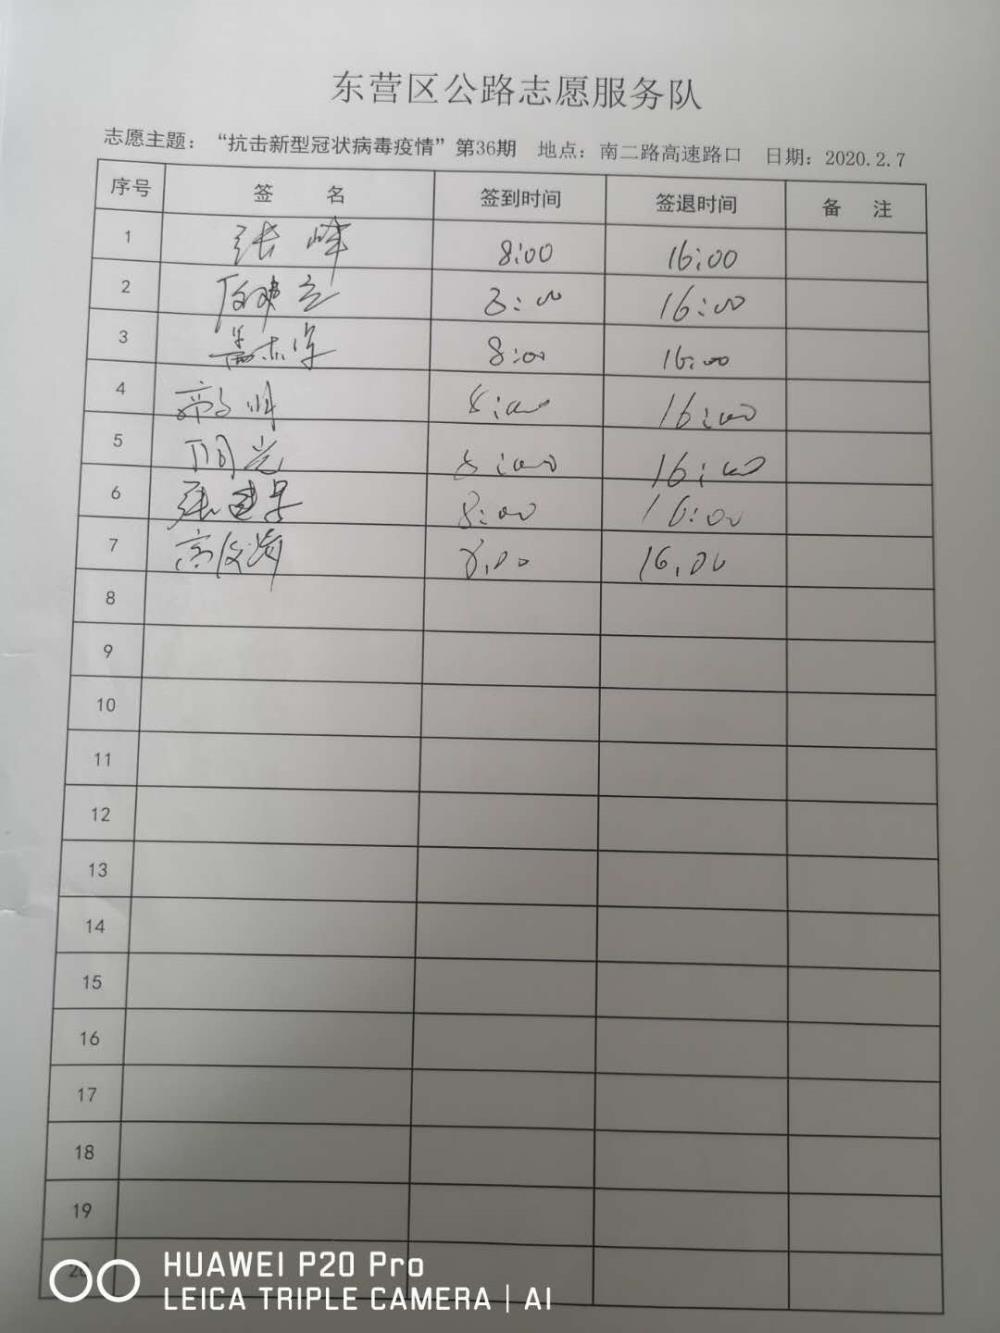 东营区公路志愿服务队
志愿主题：“抗击新型冠状病毒疫情”第36期 地点：南二路高速路口 日期：2020.2.7
序号 签 名 签到时间 签退时间 备 注
1 张峰 8:00 16:00
2 8:00 16:00
3 8:00 16:00
4 8:00 16:00
5 8:00 16:00
6 8:00 16:00
7 8:00 16:00
8
9
10
11
12
13
14
15
16
17
18
19
20
HUAWEI P20 Pro
LEICA TRIPLE CAMERA | AI